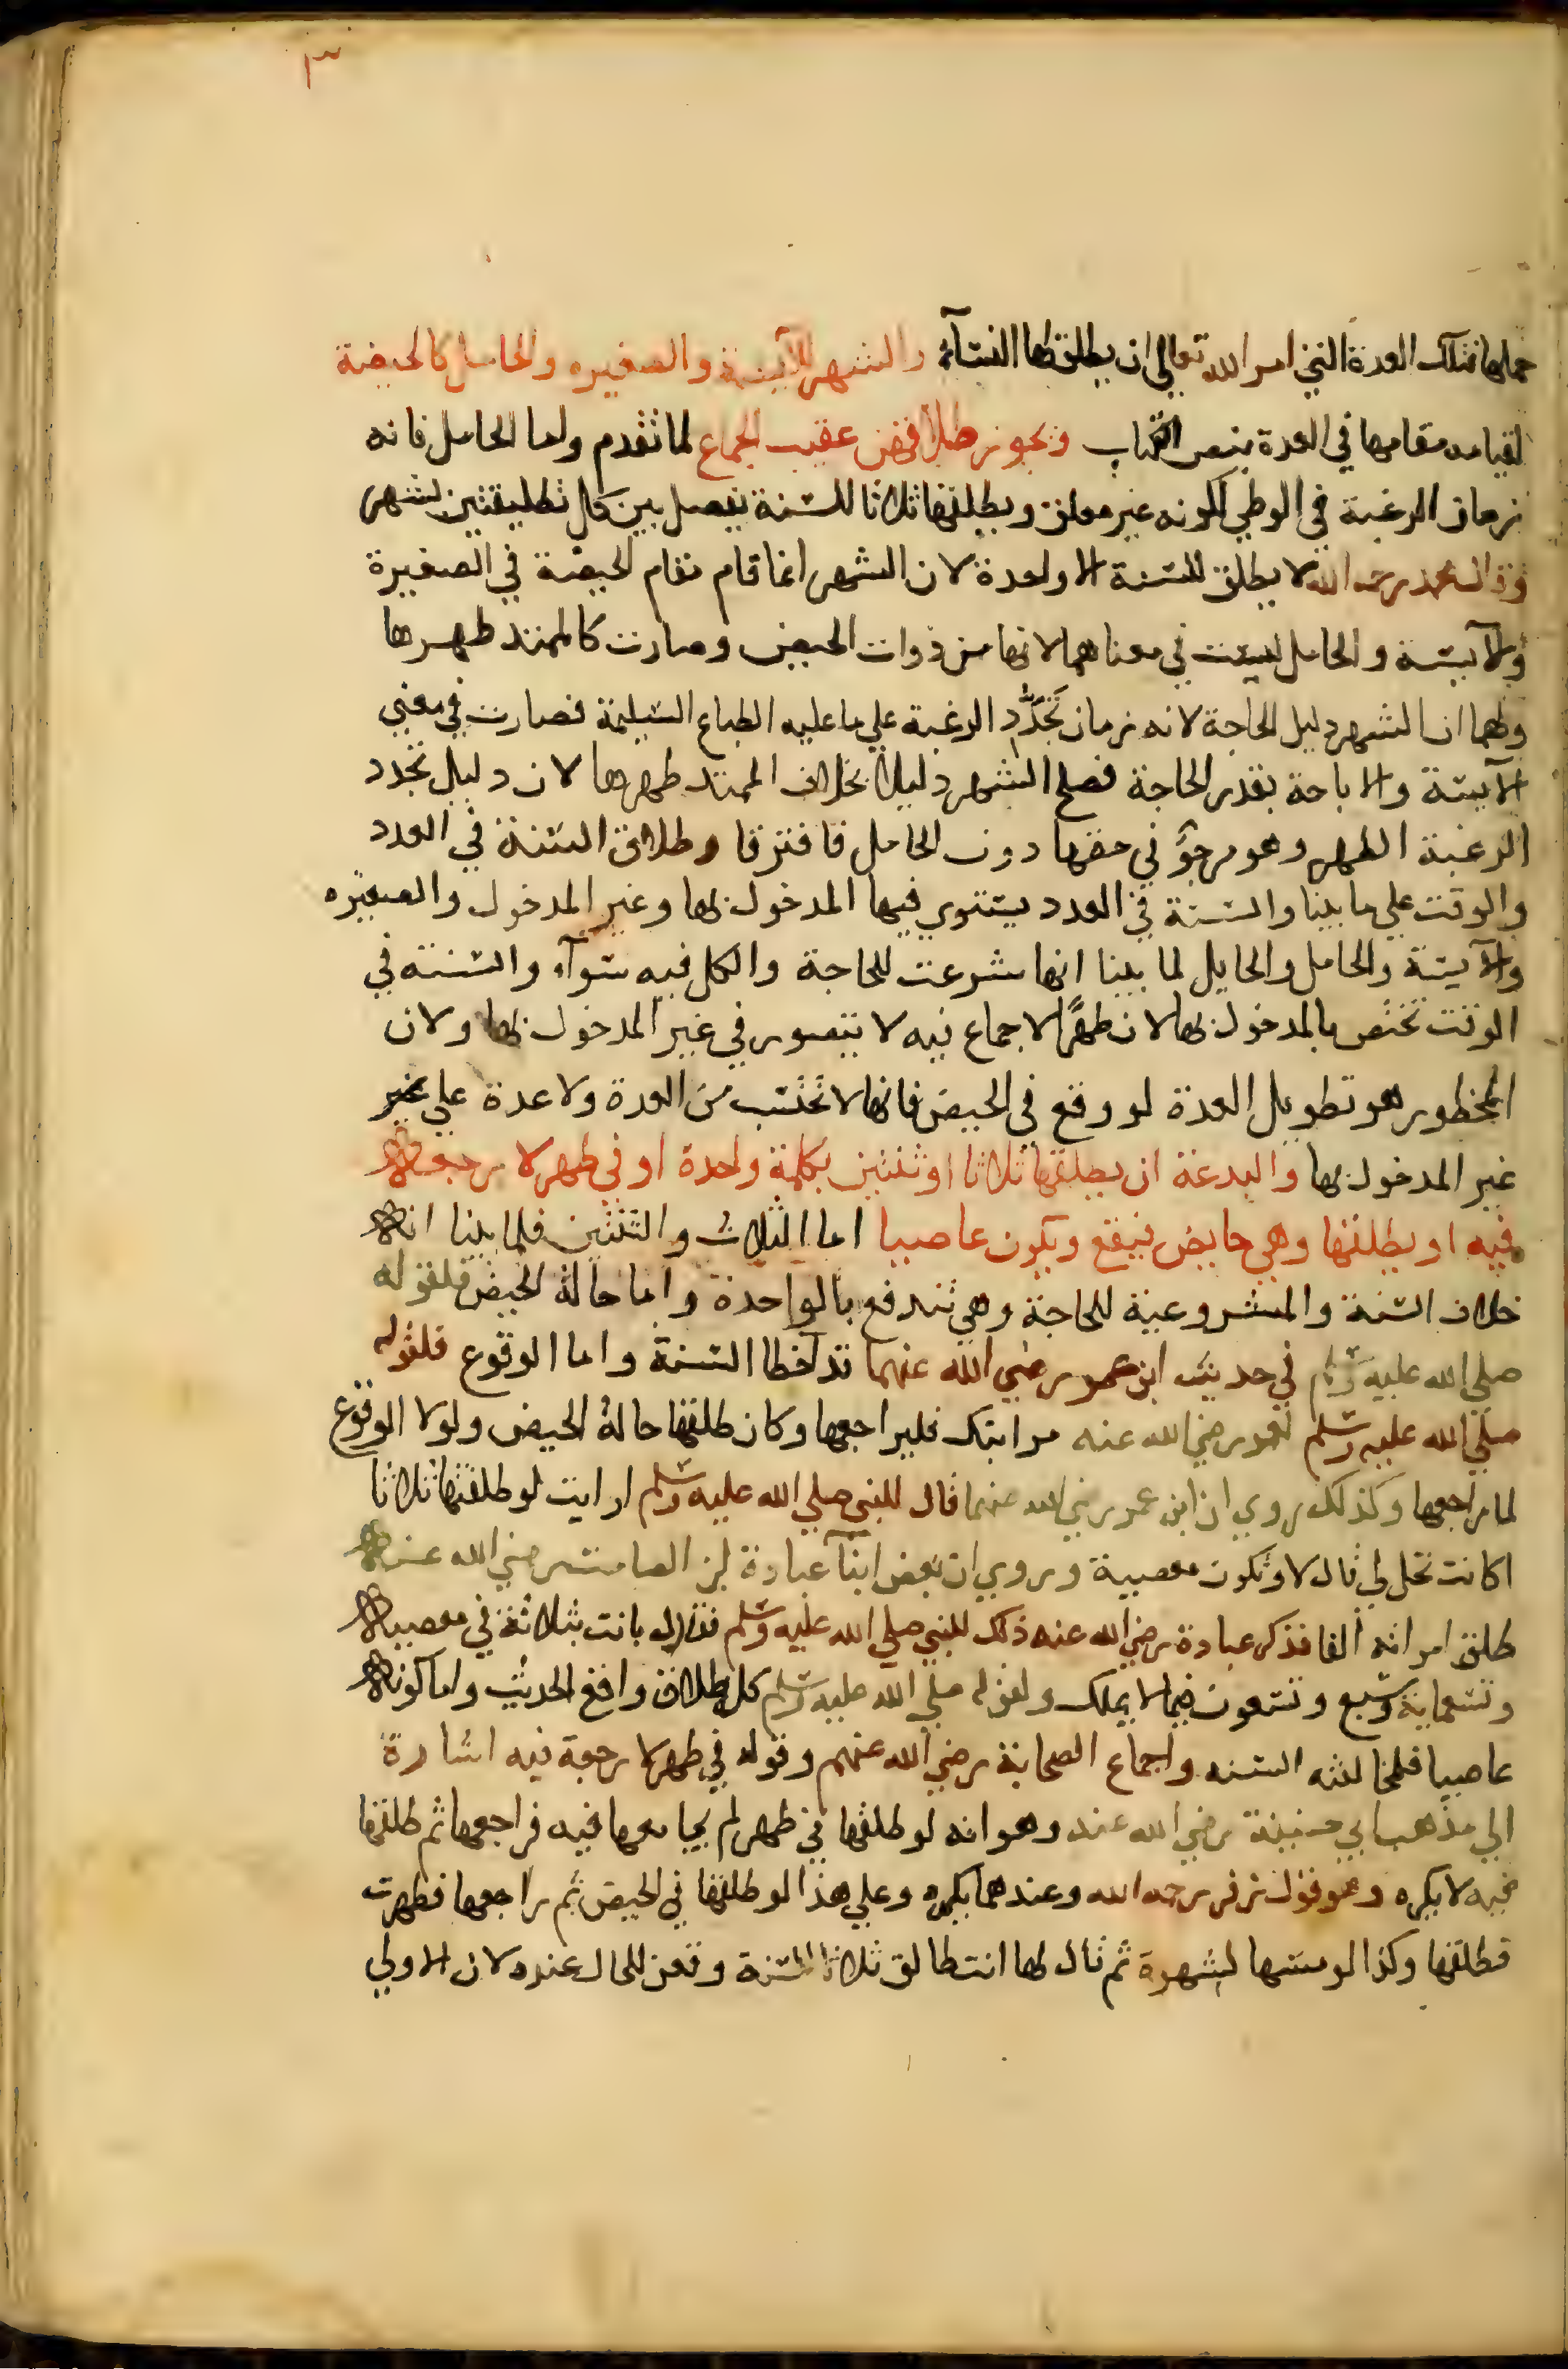 ٣
حملها فتلك العدة التي امر الله تعالى ان يطلق لها النسآء والشهر للآيسة والصغيره والحامل كالحيضة
لقيامه مقامها في العدة بنص الكتاب ويجوز طلاقهن عقيب الجماع لما تقدم واما الحامل فانه
زمان الرغبة في الوطي لكونه غير معلق ويطلقها ثلاثا للسنة يفصل بين كل تطليقتين بشهر
وقال محمد رحمه الله لا يطلق للسنة الا واحدة لان الشهر انما قام مقام الحيضة في الصغيرة
والآيسة والحامل ليست في معناهما لانها من ذوات الحيض وصارت كالممتد طهرها
ولهما ان الشهر دليل الحاجة لانه زمان تجدّد الرغبة علي ما عليه الطباع السليمة فصارت في معني
الآيسة والاباحة بقدر الحاجة فصلح الشهر دليلا بخلاف الممتد طهرها لان دليل تجدد
الرغبة الطهر وهو مرجوّ في حقها دون الحامل فافترقا وطلاق السنة في العدد
والوقت علي ما بينا والسنة في العدد يستوي فيها المدخول بها وغير المدخول والصغيره
والآيسة والحامل والحايل لما بينا انها شرعت للحاجة والكل فيه سوآء والسنه في
الوقت تختص بالمدخول بها لان طهرًا لا جماع فيه لا يتصور في غير المدخول بها ولان
المحظور هو تطويل العدة لو وقع في الحيض فانها لا تحتسب من العدة ولا عدة علي غير
غير المدخول بها والبدعة ان يطلقها ثلاثا او ثنتين بكلمة واحدة او في طهر لا رجعة
فيه او يطلقها وهي حايض فيقع ويكون عاصيا اما الثلاث والثنتين فلما بينا انه
خلاف السنة والمشروعية للحاجة وهي تندفع بالواحدة واما حالة الحيض فلقوله
صلي الله عليه وسلم في حديث ابن عمر رضي الله عنهما قد اخطا السنة واما الوقوع فلقوله
صلي الله عليه وسلم لعمر رضي الله عنه مر ابنك فليراجعها وكان طلقها حالة الحيض ولولا الوقوع
لما راجعها وكذلك روي ان ابن عمر رضي الله عنهما قال للنبي صلي الله عليه وسلم ارايت لو طلقتها ثلاثا
اكانت تحل لي قال لا وتكون معصية وروي ان بعض ابنآء عبادة بن الصامت رضي الله عنه
طلق امراته الفا فذكر عبادة رضي الله عنه ذلك للنبي صلي الله عليه وسلم فقال له بانت بثلاثة في معصية
وتسعماية وسبع وتسعون فيما لا يملك ولقوله صلي الله عليه وسلم كل طلاق واقع الحديث واما كونه
عاصيا فلمخالفته السنه واجماع الصحابة رضي الله عنهم وقوله في طهر لا رجعة فيه اشارة
الي مذهب ابي حنيفة رضي الله عنه وهو انه لو طلقها في طهر لم يجامعها فيه فراجعها ثم طلقها
فيه لا يكره وهو قول زفر رحمه الله وعندهما يكره وعلي هذا لو طلقها في الحيض ثم راجعها فطهرت
فطلقها وكذا لو مسها لشهوة ثم قال لها انت طالق ثلاثا للسنة وقعن للحال عنده لان الاولي